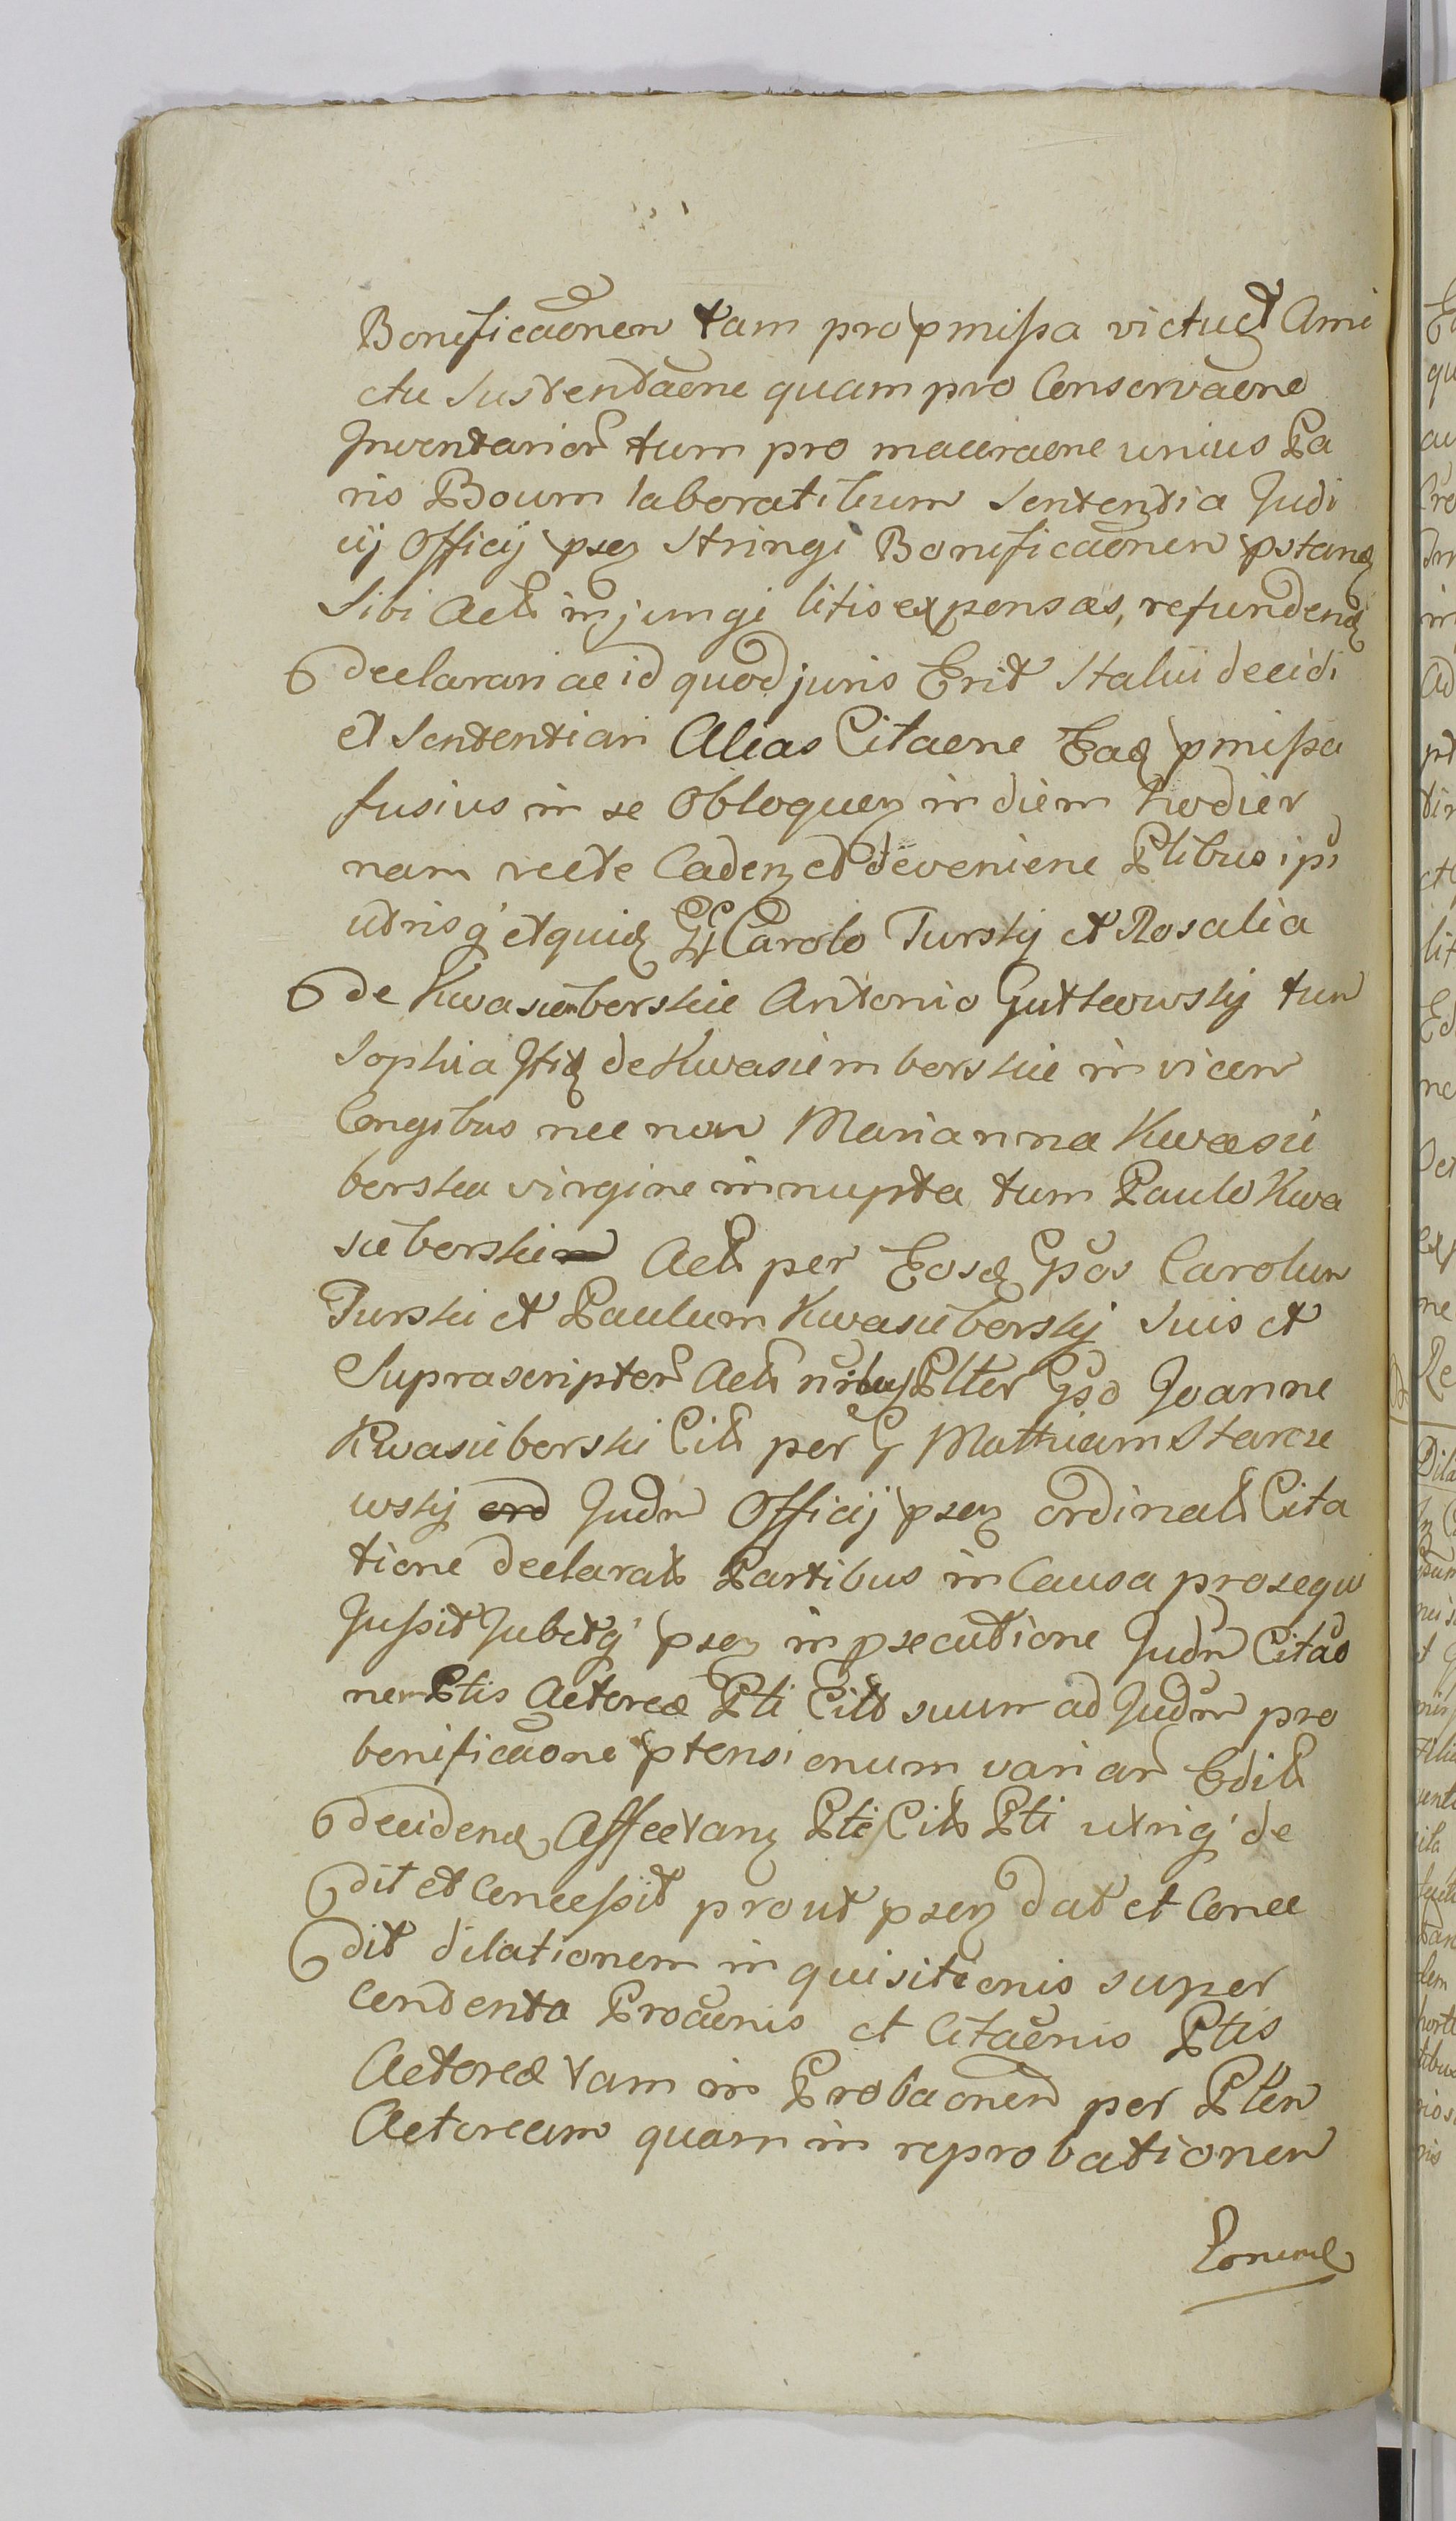 Bonificaonem tam pro pmissa victu et Ami
ctu Sustentaone quam pro Conservaone
Inventarior tum pro maceraone unius Pa
ris Boum laboratilium Sententia Judi
cij Officij psen Stringi Bonificaonem pstand
Sibi Act injungi litis expensas, refundend
declarari ac id quod juris Erit Statui decidi
et Sententiari Alias Citaone Ead pmissa
fusius in se Obloquen in diem hodier
nam recte Caden et deveniene Ptibus ipi
utrisq et quid GG Carolo Turskij et Rosalia
de Kwasieborskie Antonio Gutkowskij tum
Sophia Itid de Kwasieborskie in vicem
Congibus nec non Marianna Kwasie
borska virgine innupta tum Paulo Kwa
sieborski Act per Eosd Gsos Carolum
Turski et Paulum Kwasieborskij Suis et
Suprascriptor Act nnibus Plter Gso Joanne
Kwasieborski Cit per G Mathiam Starcze
wskij Judm Officij psen ordinat Cita
tione declarat Partibus in Causa prosequi
Jussit Jubetq psen in psecutione Judm Citao
nem Ptis Actoreæ Pti Cit suum ad Judm pro
bonificaone ptensionum variar Edit
decidend Affectan Pte Cit Pti utriq de
dit et Concessit prout psen dat et Conce
dit dilationem inquisitionis super
Contenta Procaenis et Citaonis Ptis
Actoreæ tam in Probaonem per Ptem
Actoream quam in reprobationem